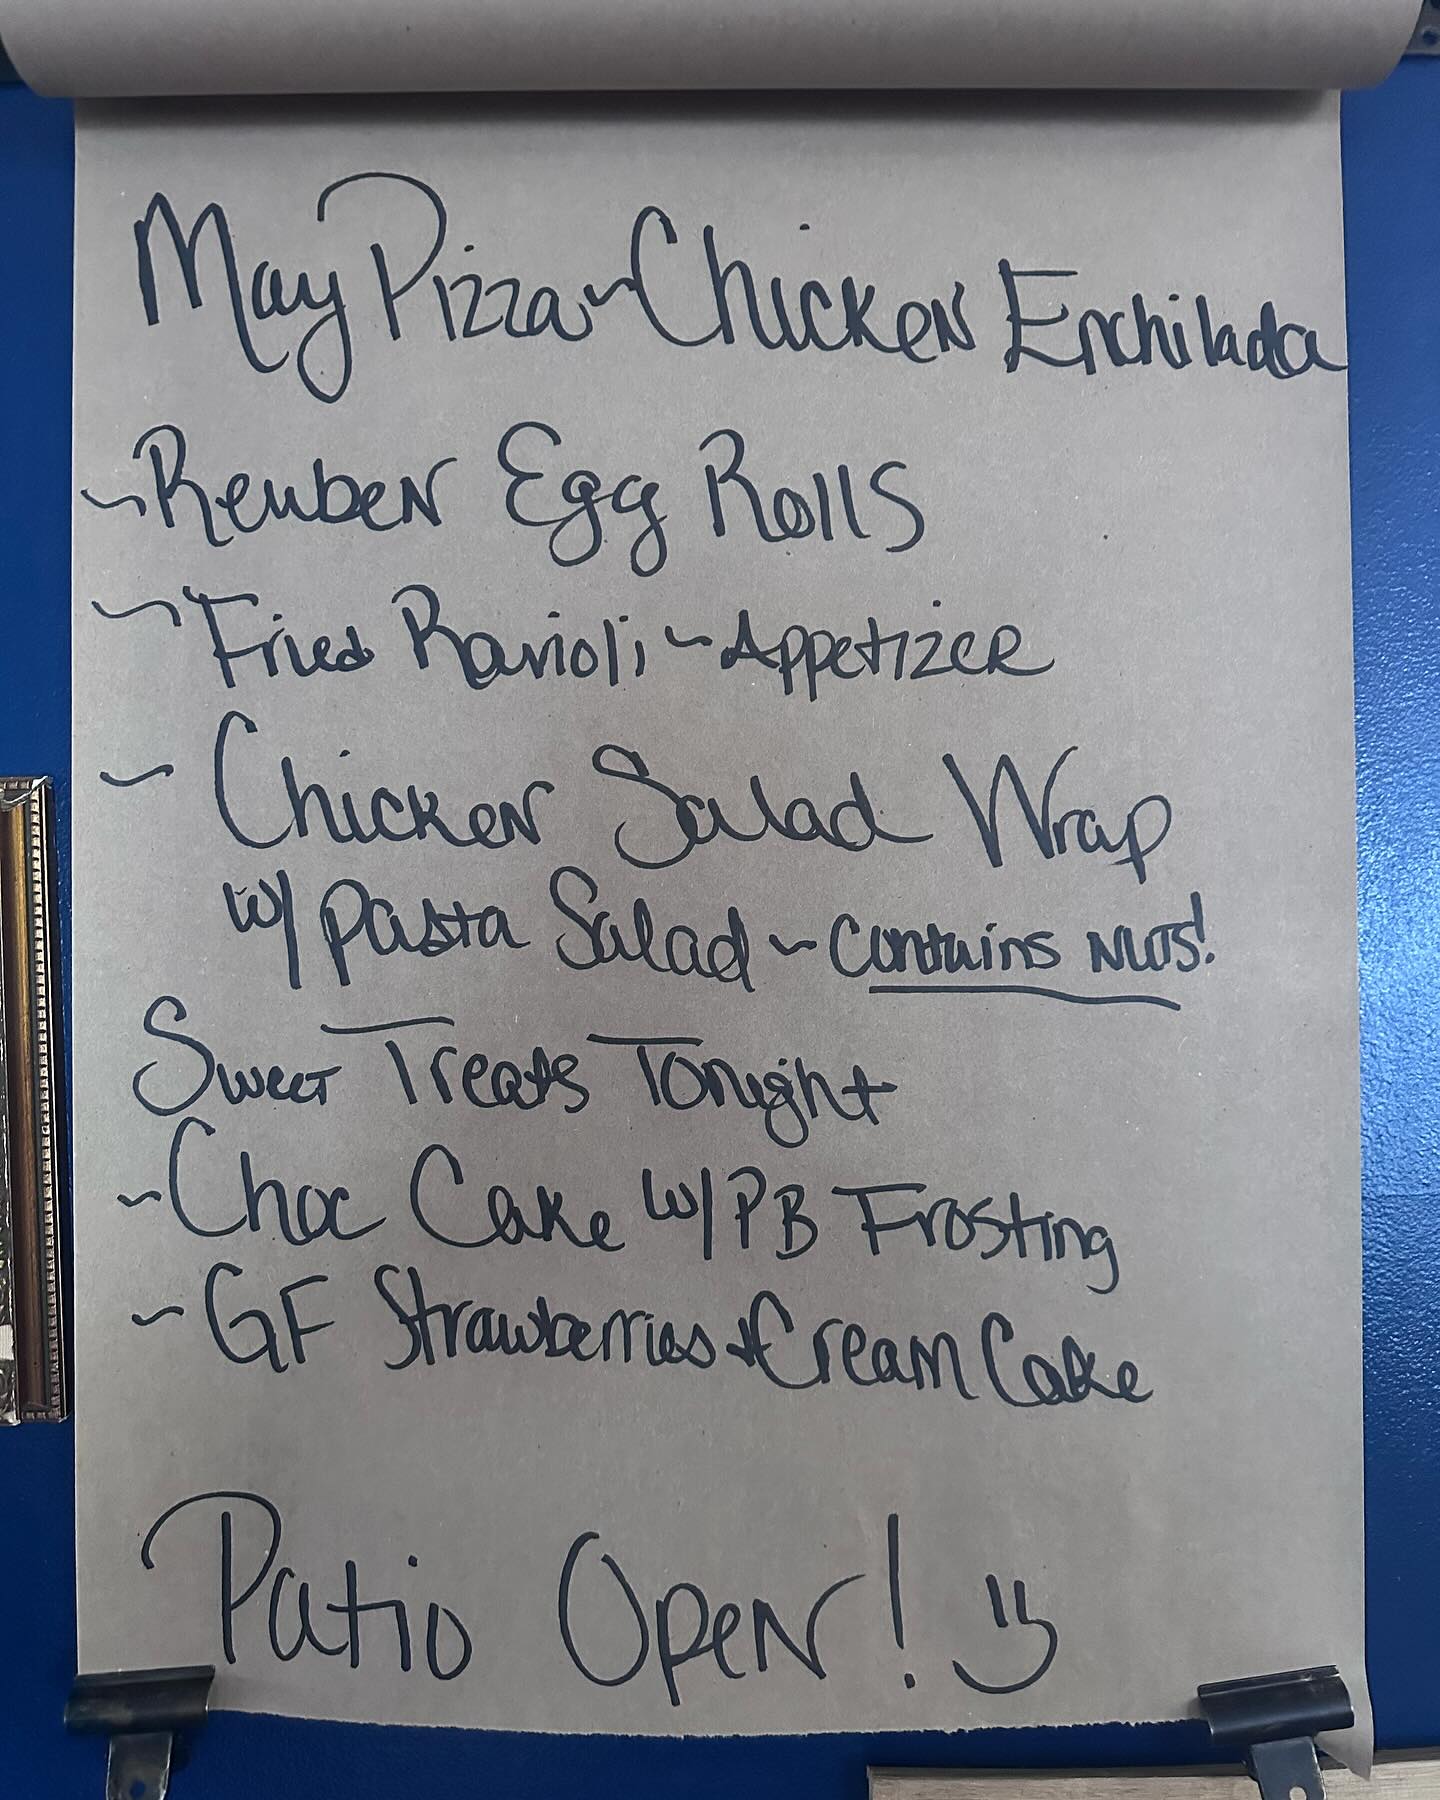 May Pizza~Chicken Enchilada
~Reuben Egg Rolls
~Fried Ravioli~Appetizer
~Chicken Salad Wrap
w/ pasta Salad~contains nuts!
Sweet Treats Tonight
~Choc Cake w/PB Frosting
~GF Strawberries+Cream Cake
Patio Open! :)